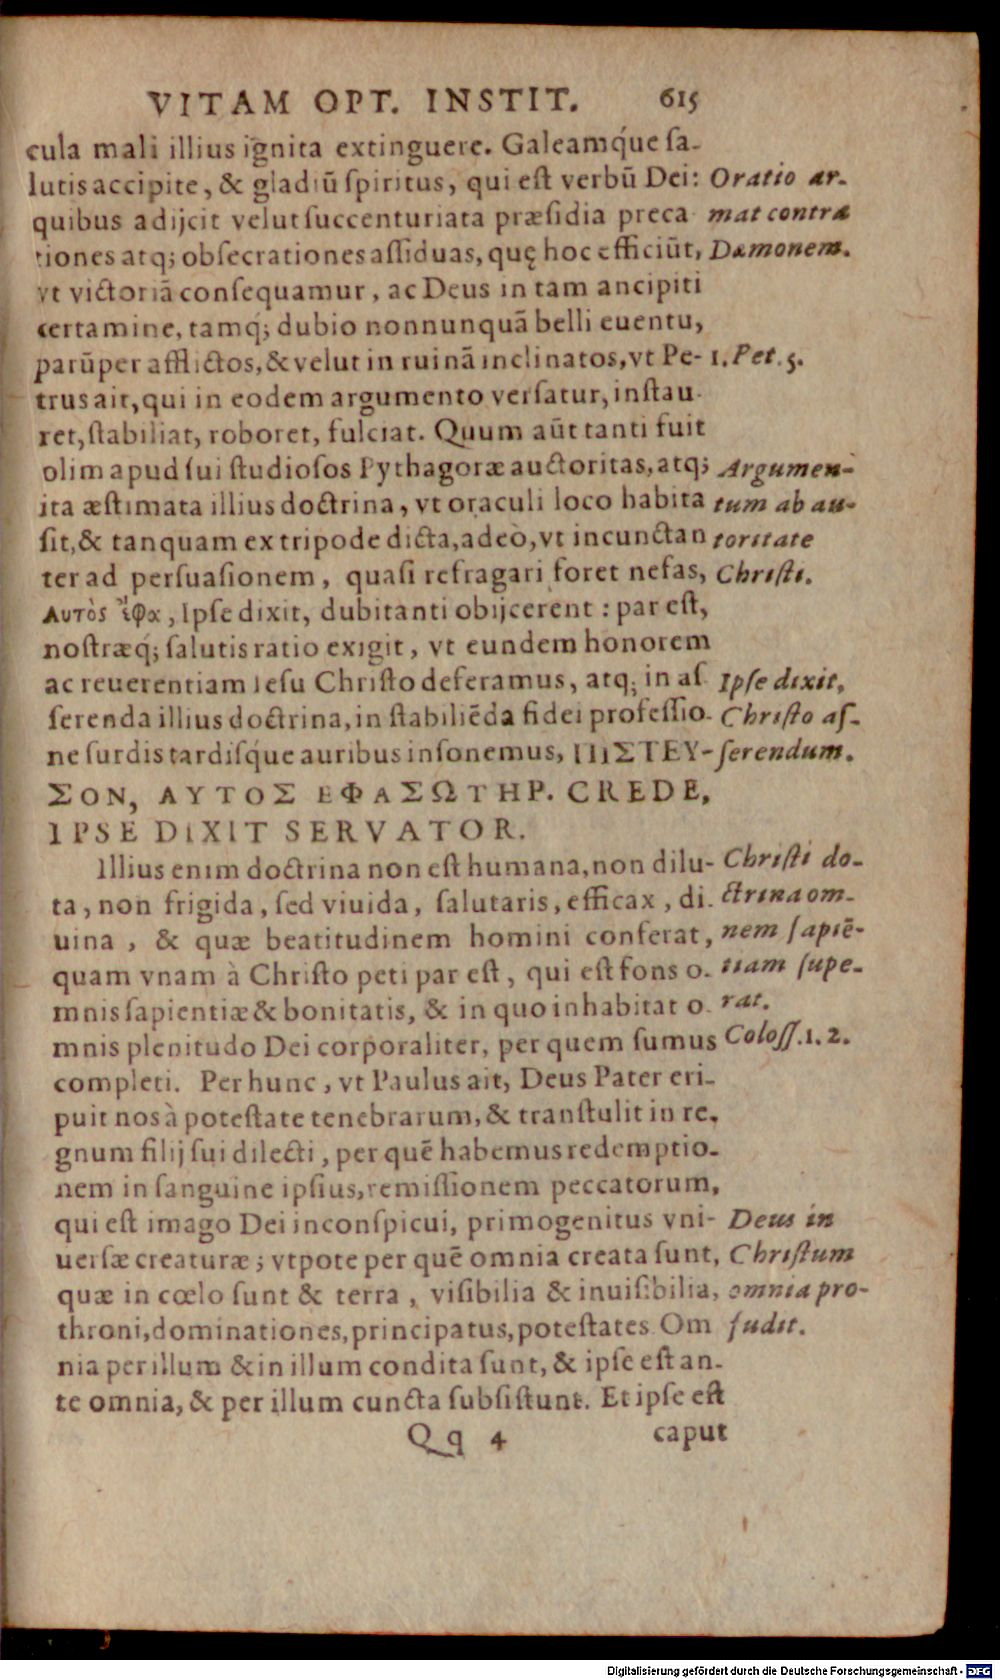 VITAM OPT. INSTIT. 615
cula mali illius ignita extinguere. Galeamq́ue sa-
lutis accipite, & gladiũ spiritus, qui est verbũ Dei:
quibus adijcit velut succenturiata præsidia preca
tiones atq; obsecrationes assiduas, quę hoc efficiũt,
vt victoriã consequamur, ac Deus in tam ancipiti
certamine, tamq́; dubio nonnunquã belli euentu,
parũper afflictos, & velut in ruinã inclinatos, vt Pe-
trus ait, qui in eodem argumento versatur, instau-
ret, stabiliat, roboret, fulciat. Quum aũt tanti fuit
olim apud sui studiosos Pythagoræ auctoritas, atq;
ita æstimata illius doctrina, vt oraculi loco habita
sit, & tanquam ex tripode dicta, adeò, vt incunctan
ter ad persuasionem, quasi refragari foret nefas,
Αυτὸς ἔφα, Ipse dixit, dubitanti obijcerent: par est,
nostræq́; salutis ratio exigit, vt eundem honorem
ac reuerentiam Iesu Christo deferamus, atq; in as
serenda illius doctrina, in stabiliẽda fidei professio-
ne surdis tardisq́ue auribus insonemus, ΠΙΣΤΕΥ-
ΣΟΝ, ΑΥΤΟΣ ΕΦΑ ΣΩΤΗΡ. CREDE,
IPSE DIXIT SERVATOR.
Illius enim doctrina non est humana, non dilu-
ta, non frigida, sed viuida, salutaris, efficax, di-
uina, & quæ beatitudinem homini conferat,
quam vnam à Christo peti par est, qui est fons o-
mnis sapientiæ & bonitatis, & in quo inhabitat o
mnis plenitudo Dei corporaliter, per quem sumus
completi. Per hunc, vt Paulus ait, Deus Pater eri-
puit nos à potestate tenebrarum, & transtulit in re-
gnum filij sui dilecti, per quẽ habemus redemptio-
nem in sanguine ipsius, remissionem peccatorum,
qui est imago Dei inconspicui, primogenitus vni-
uersæ creaturæ; vtpote per quẽ omnia creata sunt,
quæ in cœlo sunt & terra, visibilia & inuisibilia,
throni, dominationes, principatus, potestates. Om
nia per illum & in illum condita sunt, & ipse est an-
te omnia, & per illum cuncta subsistunt. Et ipse est
Qq 4 caput
Oratio ar-
mat contra
Dæmonem.
1. Pet. 5.
Argumen-
tum ab au-
toritate
Christi.
Ipse dixit,
Christo as-
serendum.
Christi do-
ctrina om-
nem sapiẽ-
tiam supe-
rat.
Coloss. 1. 2.
Deus in
Christum
omnia pro-
fudit.
Digitalisierung gefördert durch die Deutsche Forschungsgemeinschaft - DFG